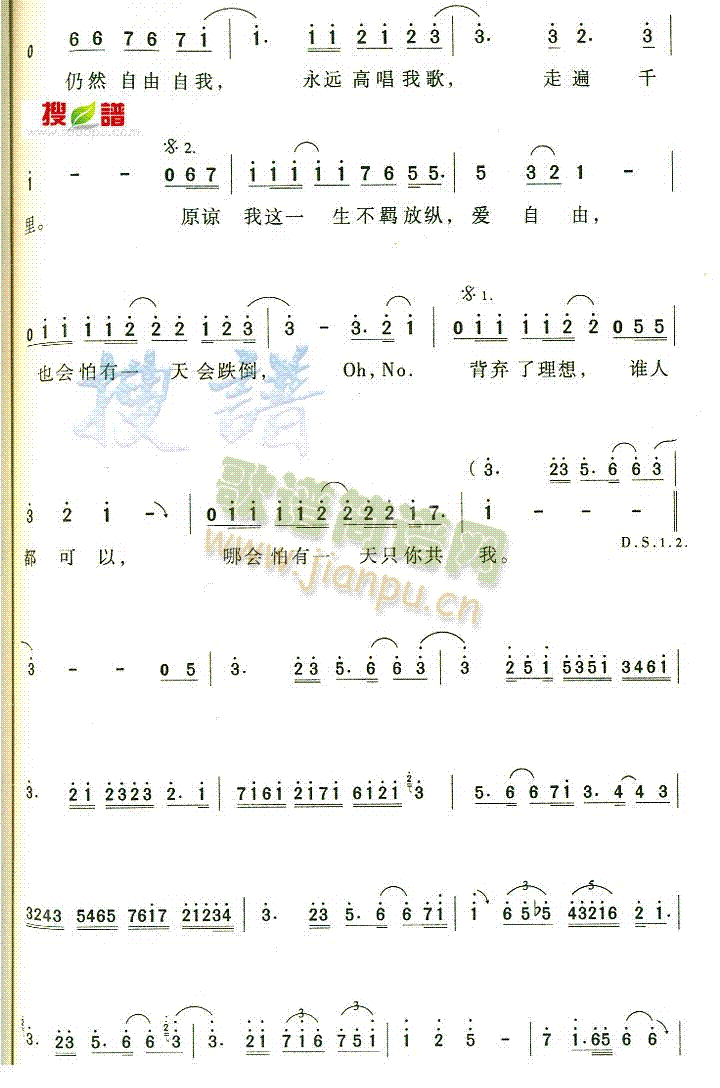 0 6 6 7 6 7 i | i. i i 2 i 2 3 | 3. 3 2. 3
仍然 自由自我， 永远 高唱我歌， 走遍 千
搜 譜
www.sooopu.com
i - - 0 6 7 | i i i i i 7 6 5 5. | 5 3 2 1 - |
𝄋 2.
里。 原谅 我这一 生不羁放纵，爱 自 由，
0 i i i i 2 2 2 i 2 3 | 3 - 3. 2 i | 0 i i i i 2 2 0 5 5 |
𝄋 1.
也会怕有一 天会跌倒， Oh, No. 背弃了理想， 谁人
搜 譜
(3. 2 3 5. 6 6 3
3 2 i - | 0 i i i i 2 2 2 2 i 7. | i - - - ‖
都 可 以， 哪会怕有一 天只你共 我。 D.S.1.2.
歌谱简谱网
www.jianpu.cn
3 - - 0 5 | 3. 2 3 5. 6 6 3 | 3 2 5 i 5 3 5 i 3 4 6 i |
3. 2 i 2 3 2 3 2. i | 7 i 6 i 2 i 7 i 6 i 2 i 2 3 | 5. 6 6 7 i 3. 4 4 3 |
3 2 4 3 5 4 6 5 7 6 i 7 2 i 2 3 4 | 3. 2 3 5. 6 6 7 i | i 6 5 ♭5 4 3 2 i 6 2 i. |
3 5
3. 2 3 5. 6 6 2 3 | 3. 2 i 7 i 6 7 5 i | i 2 5 - | 7 i. 6 5 6 6
3 3